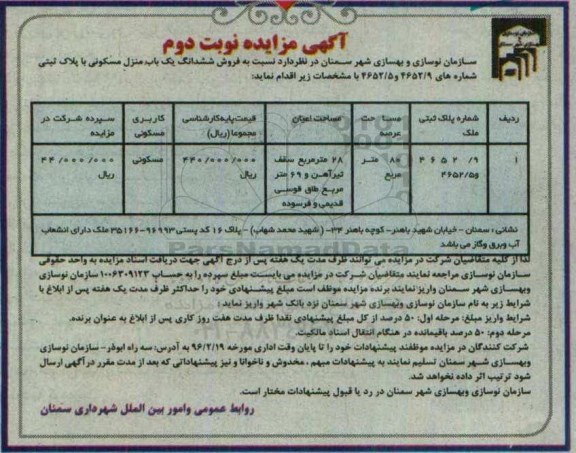 آگهی مزایده نوبت دوم
سازمان نوسازی و بهسازی شهر سمنان در نظردارد نسبت به فروش ششدانگ یک باب منزل مسکونی با پلاک ثبتی
شماره های ۴۶۵۲/۹ و۴۶۵۲/۵ با مشخصات زیر اقدام نماید:
ردیف شماره پلاک ثبتی ملک مساحت عرصه مساحت اعیان قیمت پایه کارشناسی مجموعا (ریال) کاربری مسکونی سپرده شرکت در مزایده
۱ ۴۶۵۲/۹ و۴۶۵۲/۵ ۸۰ متر مربع ۲۸ مترمربع سقف تیرآهن و ۶۹ متر مربع طاق قوسی قدیمی و فرسوده ۴۴۰/۰۰۰/۰۰۰ ریال مسکونی ۴۴/۰۰۰/۰۰۰ ریال
نشانی : سمنان - خیابان شهید باهنر- کوچه باهنر ۳۴- (شهید محمد شهاب) - پلاک ۱۶ کد پستی ۹۶۹۹۳-۳۵۱۶۶ ملک دارای انشعاب
آب وبرق وگاز می باشد
لذا از کلیه متقاضیان شرکت در مزایده می توانند ظرف مدت یک هفته پس از درج آگهی جهت دریافت اسناد مزایده به واحد حقوقی
سازمان نوسازی مراجعه نمایند متقاضیان شرکت در مزایده می بایست مبلغ سپرده را به حساب ۱۰۰۶۳۰۹۱۲۳ سازمان نوسازی
وبهسازی شهر سمنان واریز نمایند برنده مزایده موظف است مبلغ پیشنهادی خود را حداکثر ظرف مدت یک هفته پس از ابلاغ با
شرایط زیر به نام سازمان نوسازی وبهسازی شهر سمنان نزد بانک شهر واریز نماید:
شرایط واریز مبلغ: مرحله اول: ۵۰ درصد از کل مبلغ پیشنهادی نقدا ظرف مدت هفت روز کاری پس از ابلاغ به عنوان برنده.
مرحله دوم: ۵۰ درصد باقیمانده در هنگام انتقال اسناد مالکیت.
شرکت کنندگان در مزایده موظفند پیشنهادات خود را تا پایان وقت اداری مورخه ۹۶/۲/۱۹ به آدرس: سه راه ابوذر- سازمان نوسازی
وبهسازی شهر سمنان تسلیم نمایند به پیشنهادات مبهم ، مخدوش و ناخوانا و نیز پیشنهاداتی که بعد از مدت مقرر در آگهی ارسال
شود ترتیب اثر داده نخواهد شد.
سازمان نوسازی وبهسازی شهر سمنان در رد یا قبول پیشنهادات مختار است.
روابط عمومی وامور بین الملل شهرداری سمنان
ParsNamadData